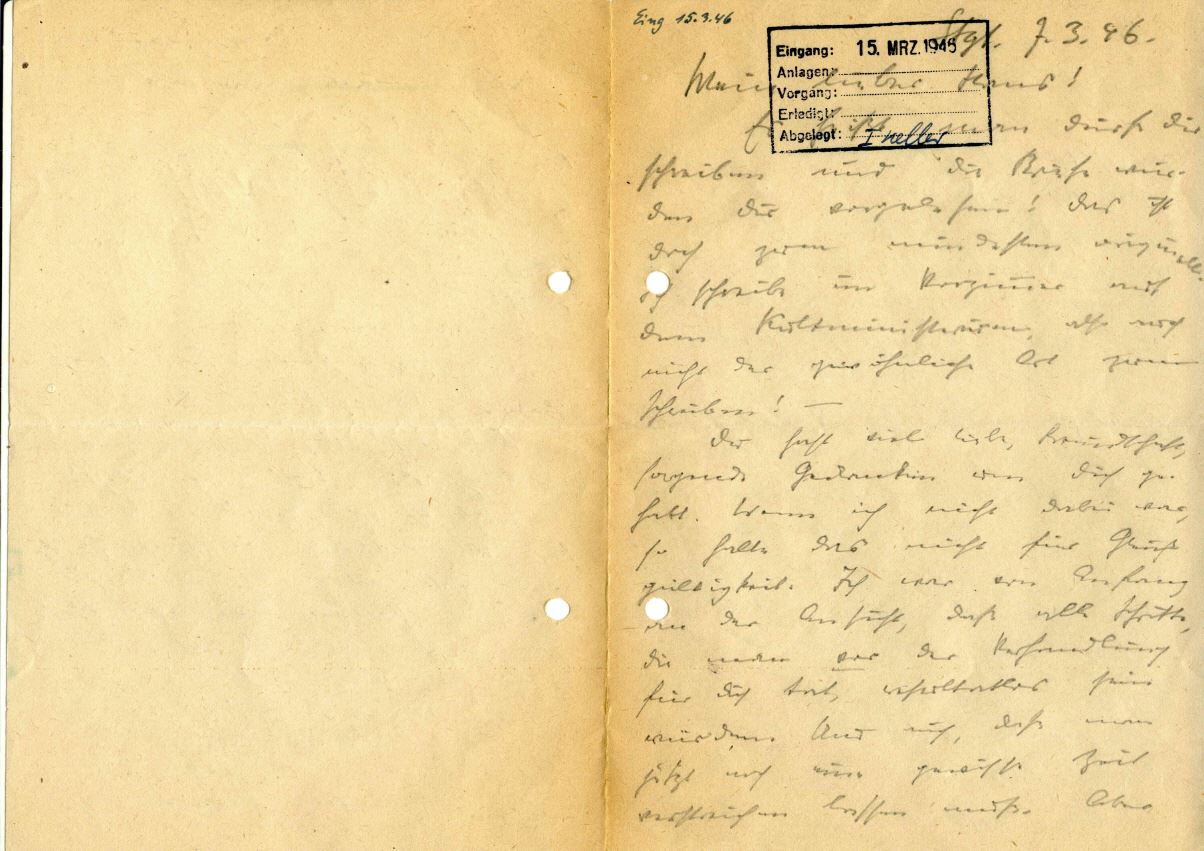 Eing 15.3.46
Eingang: 15. MRZ. 1946
Anlagen:
Vorgang:
Erledigt:
Abgelegt: Kneller
Stgt. 7.3.46.
Mein lieber Hans!
Es heißt, man dürfe dir
schreiben und die Briefe wür-
den dir vorgelesen! Das ist
doch zum mindesten originell.
Ich schreibe im Vorzimmer auf
dem Kultministerium, also auch
nicht der gewöhnliche Ort zum
schreiben! —
Du hast viel Liebe, Freundschaft,
sorgende Gedanken um dich ge-
habt. Wenn ich nicht dabei war,
so halte das nicht für Gleich-
gültigkeit. Ich war von Anfang
an der Ansicht, daß alle Schritte,
die man vor der Verhandlung
für dich tat, resultatlos sein
würden. Und auch, daß man
jetzt noch eine gewisse Zeit
verstreichen lassen muß. Aber